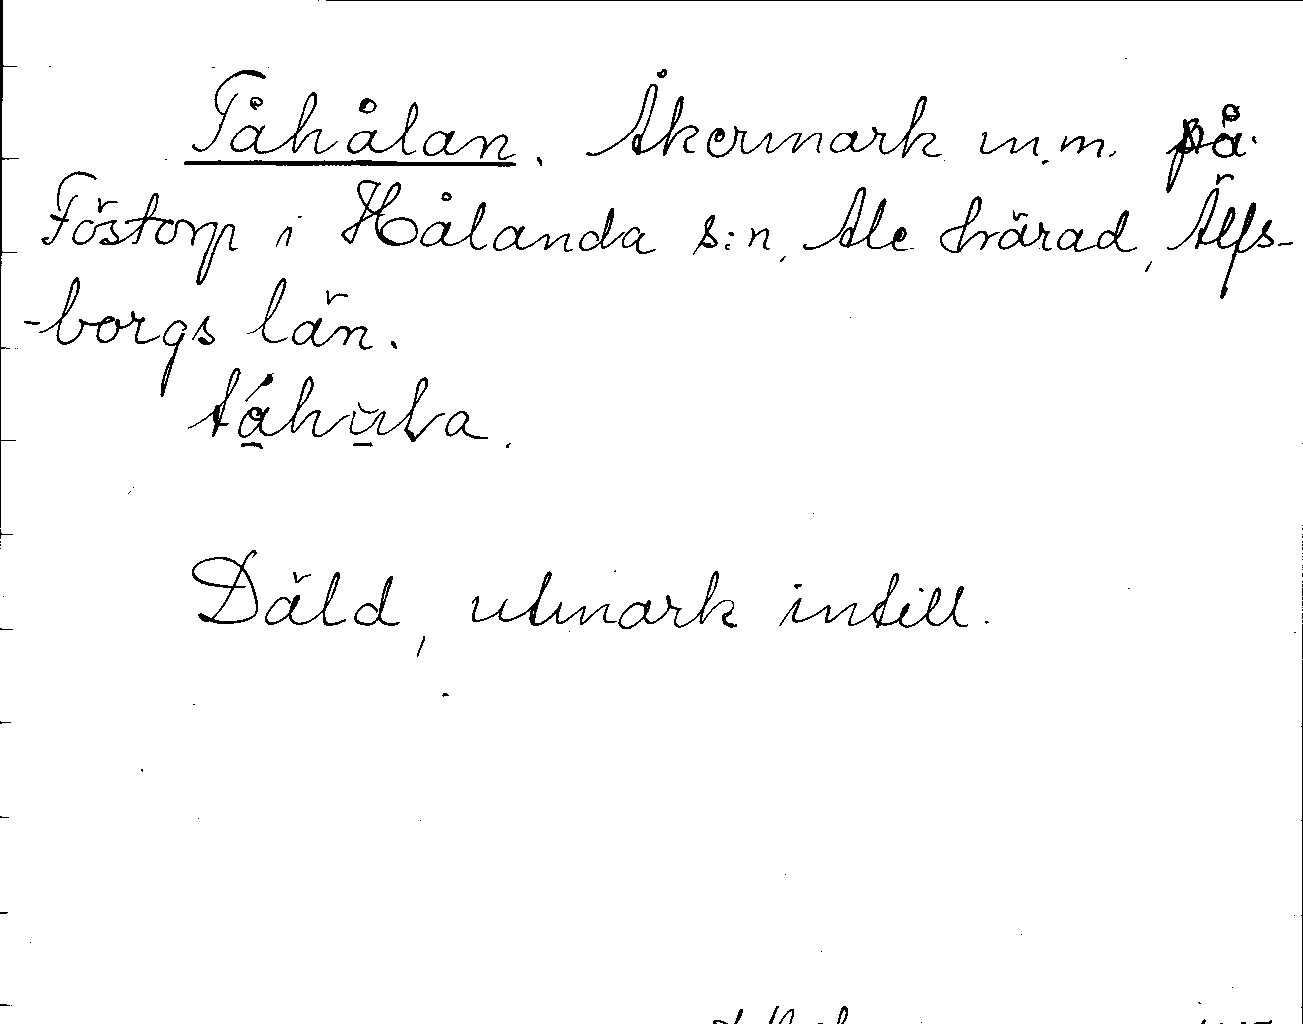 Tåhålan. Åkermark m.m. på
Föstorp i Hålanda s:n, Ale härad, Älfs-
-borgs län.
Däld, utmark intill.